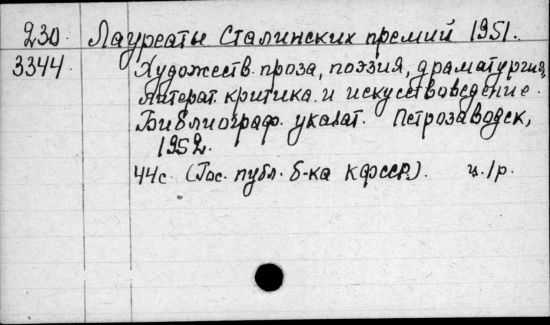 230. Лауреаты Сталинских премий 1951.
3344. Художеств. проза, поэзия, драматургия,
литерат. критика и искусствоведение.
Библиограф. указат. Петрозаводск,
1952.
44с. (Гос. публ. б-ка КФССР). ц. 1р.